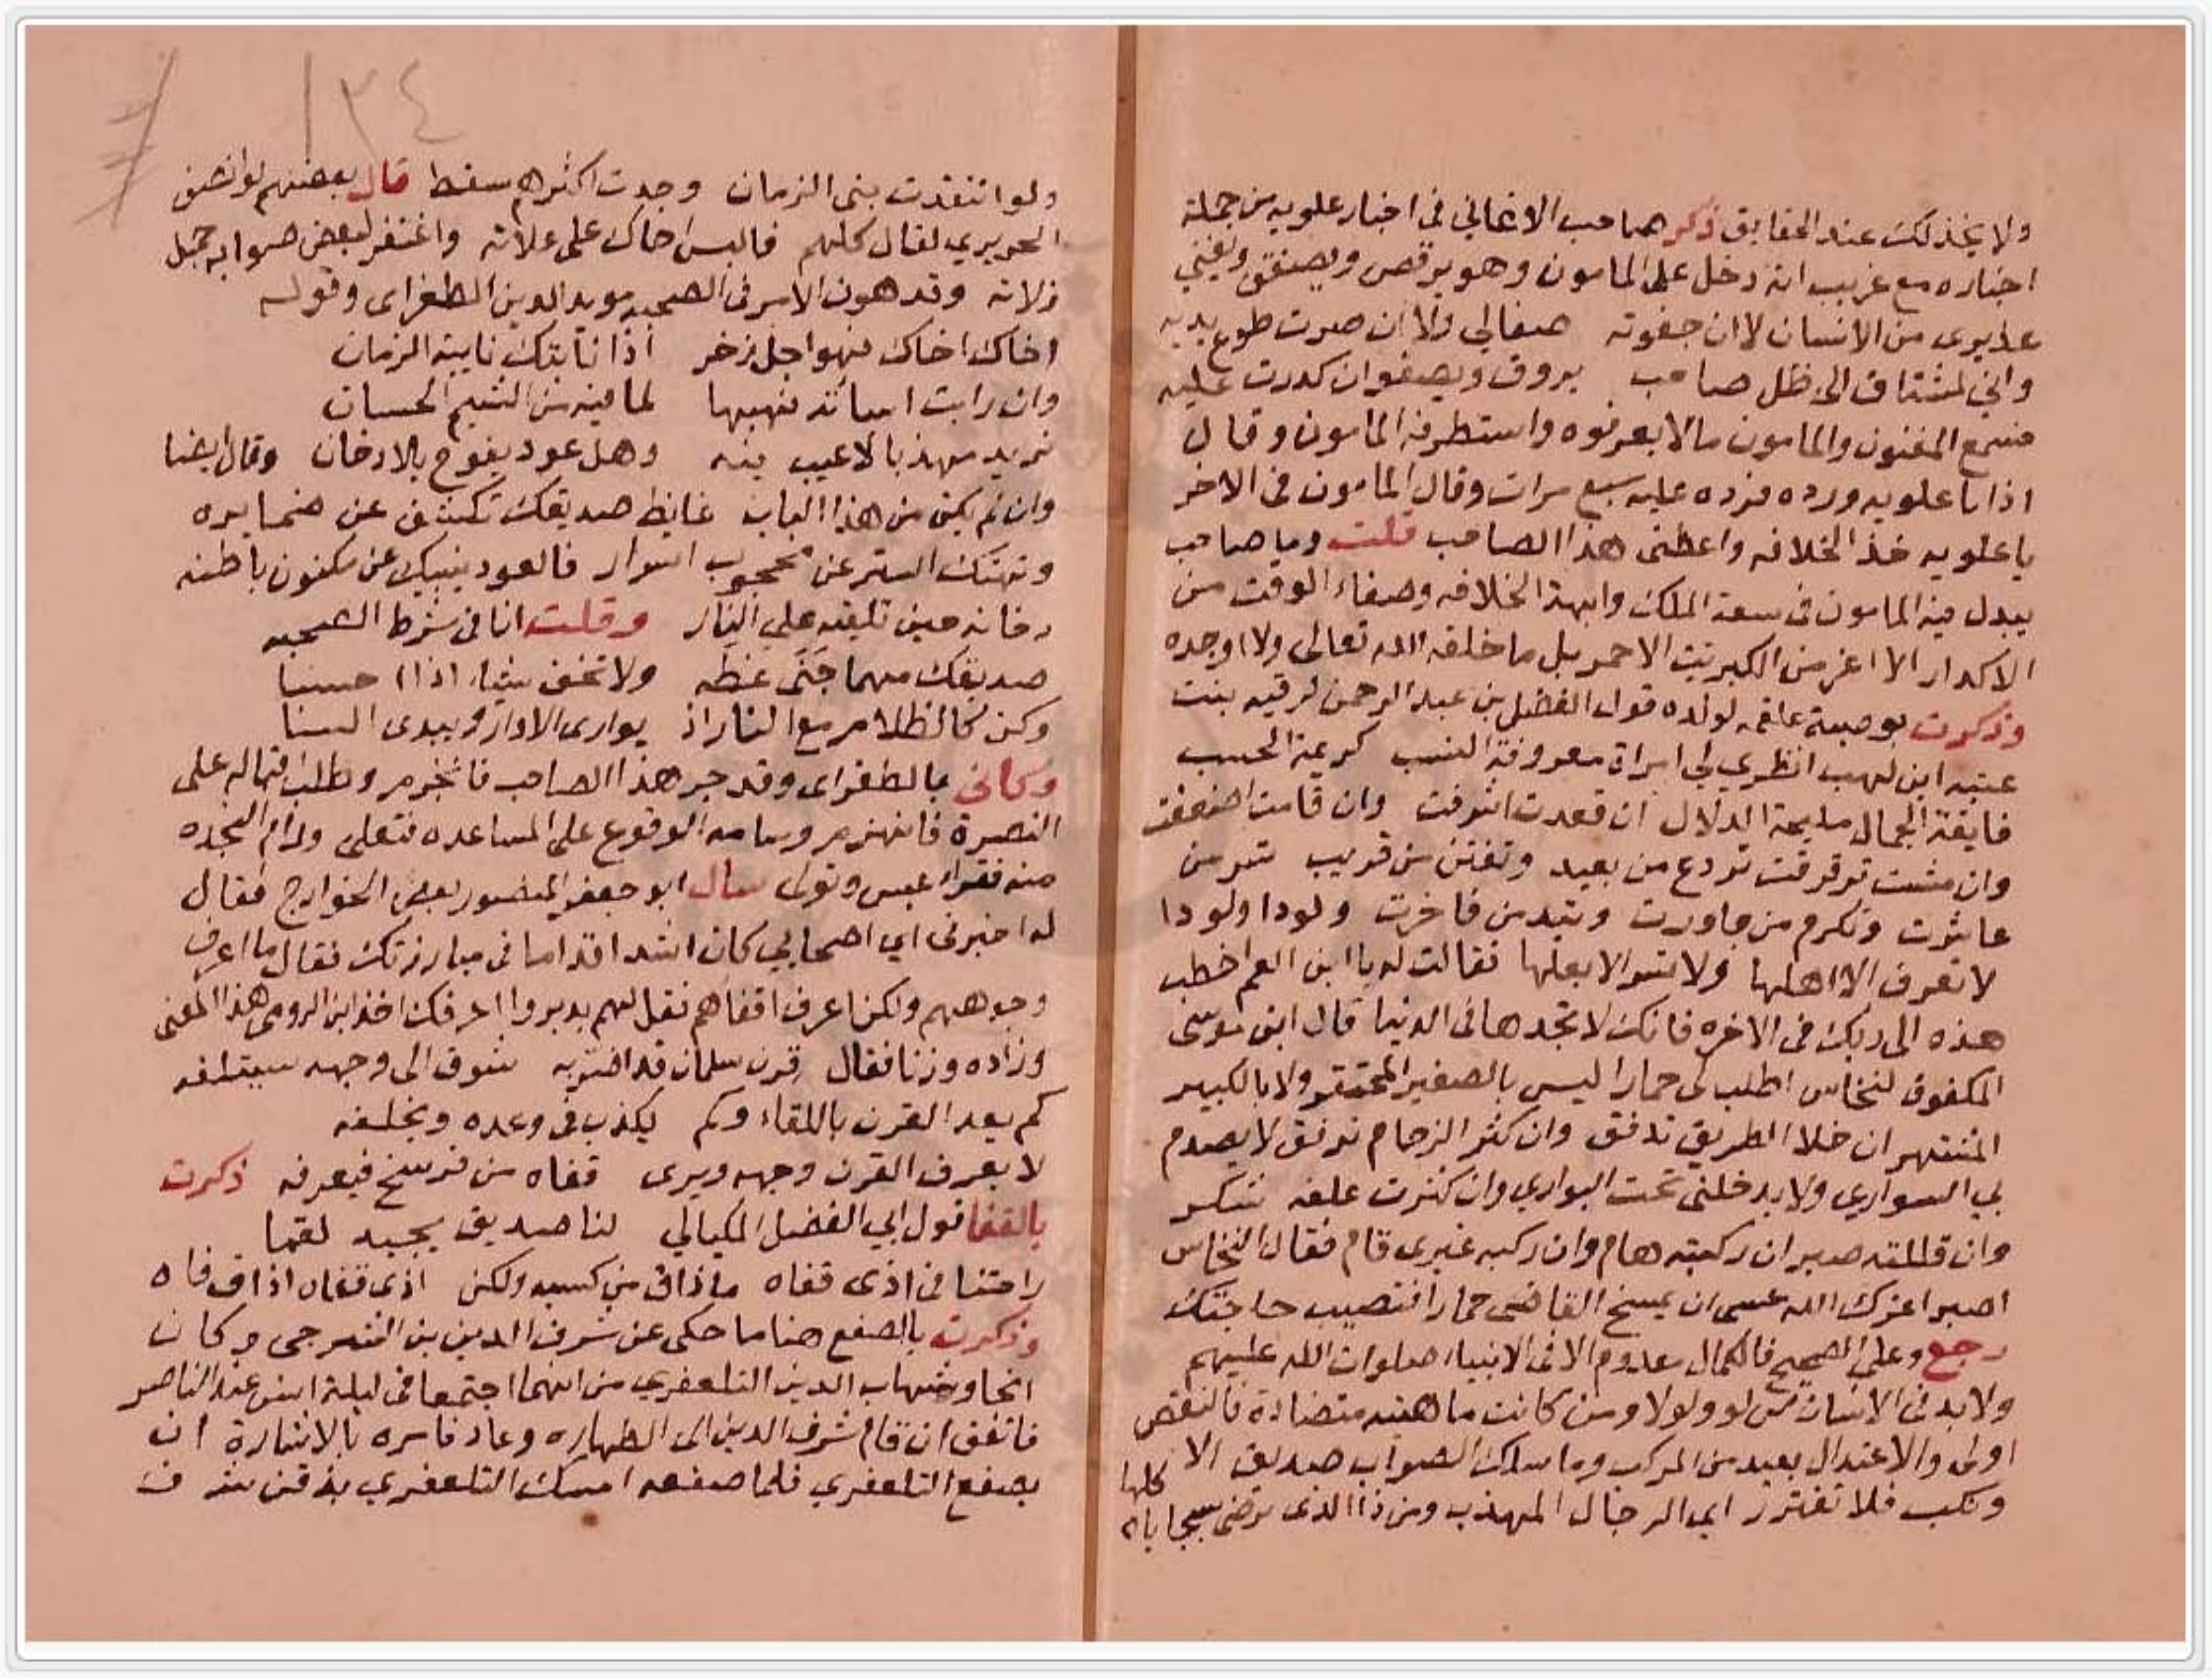 ولا يخذلك عند الحقايق ذكر صاحب الاغاني في اخبار علويه من جملة
اخباره مع غريب انه دخل على المامون وهو يرقص ويصفق ويغني
عذيري من الانسان لا ان جفوته صفا لي ولا ان صرت طوع يديه
واني لمشتاق الى ظل صاحب يروق ويصفو ان كدرت عليه
فسمع المغنون والمامون مالا يعرفوه واستطرفه المامون وقال
اذا يا علويه ورده فرده عليه سبع مرات وقال المامون في الاخر
يا علويه خذ الخلافه واعطني هذا الصاحب قلت وما صاحب
يبدل فيه المامون في سعة الملك وابهة الخلافه وصفاء الوقت من
الاكدار الا اعز من الكبريت الاحمر بل ما خلقه الله تعالى ولا اوجده
وذكرت بوصية علقمه لولده قول الفضل بن عبد الرحمن لرقيه بنت
عتبه ابن لهب انظري لي امراة معروفة النسب كريمة الحسب
فايقة الجمال مليحة الدلال ان قعدت اشرفت وان قامت اضعفت
وان مشت ترقرقت تردع من بعيد وتفتن من قريب تسر من
عاشرت وتكرم من جاورت وتبد من فاخرت ودودا ولودا
لا تعرف الا اهلها ولا تسر الا بعلها فقالت له يا ابن العم اخطب
هذه الى ربك في الاخره فانك لا تجدها في الدنيا قال ابن موسى
المكفوف لنخاس اطلب لي حمارا ليس بالصغير المحتقر ولا بالكبير
المشتهر ان خلا الطريق تدفق وان كثر الزحام ترفق لا يصدم
بي السواري ولا يدخلني تحت البواري وان كثرت علفه شكر
وان قللته صبر ان ركبته هام وان ركبه غيري قام فقال النخاس
اصبر اعزك الله عسى ان يمسخ القاضي حمارا فتصيب حاجتك
رجع وعلى الصحيح فالكمال معدوم الا في الانبياء صلوات الله عليهم
ولابد في الانسان من لو ولولا ومن كانت ماهيته متضادة فالنقص
اولى والاعتدال بعيد من المركب وما سلك الصواب صديق الا
ونكب فلا تغترر اي الرجال المهذب ومن ذا الذي ترضى سجاياه كلها
١٣٤
ولو انتقدت بني الزمان وجدت اكثرهم سقط قال بعضهم لو انصف
الحريري لقال كلهم فالبس اخاك على علاته واغتفر لبعض صوابه جمل
زلاته وقد هون الامر في الصحبه مويد الدين الطغراى وقوله
اخاك اخاك فهو اجل ذخر اذا نابتك نايبة الزمان
وان رابت اساته فهبها لما فيه من الشيم الحسان
تريد مهذبا لا عيب فيه وهل عود يفوح بلا دخان وقال ايضا
وان لم يكن من هذا الباب غايظ صديقك تكشف عن ضمايره
وتهتك الستر عن محجوب اسرار فالعود ينبيك عن مكنون باطنه
دخانه حين تلقيه على النار وقلت انا في شرط الصحبه
صديقك مهما جنى غطه ولا تخف شيا اذا احسنا
وكن كالظلام مع النار اذ يوارى الاوار ويبدى السنا
وكاني بالطغراى وقد جر هذا الصاحب فانخرم وطلب قتاله على
النصرة فانهزم وسامه الوقوع على المساعده فتعلى ورام النجده
منه فقرا عبس وتولى سال ابو جعفر المنصور بعض الخوارج فقال
له اخبرني اي اصحابي كان اشد اقداما في مبارزتك فقال ما اعرف
وجوههم ولكن اعرف اقفاهم فقل لهم يدبروا اعرفك اخذ ابن الرومي هذا المعنى
وزاده وزنا فقال قرن سلمان قد اضر به شوق الى وجهه سيتلفه
كم يعد القرن باللقاء وكم يكذب في وعده ويخلفه
لا يعرف القرن وجهه ويرى قفاه من فرسخ فيعرفه ذكرت
بالقفا قول ابي الفضل الميكالي لنا صديق يجيد لقما
راحتنا في اذى قفاه ما ذاق من كسبه ولكن اذى قفاه اذاق فاه
وذكرت بالصفع هنا ما حكى عن شرف الدين بن الشيرجى وكان
انحا وشهاب الدين التلعفري من انهما اجتمعا في ليلة انس عند الناصر
فاتفق ان قام شرف الدين الى الطهاره وعاد فامره بالاشارة ان
يصفع التلعفري فلما صفعه امسك التلعفري بذقن شرف